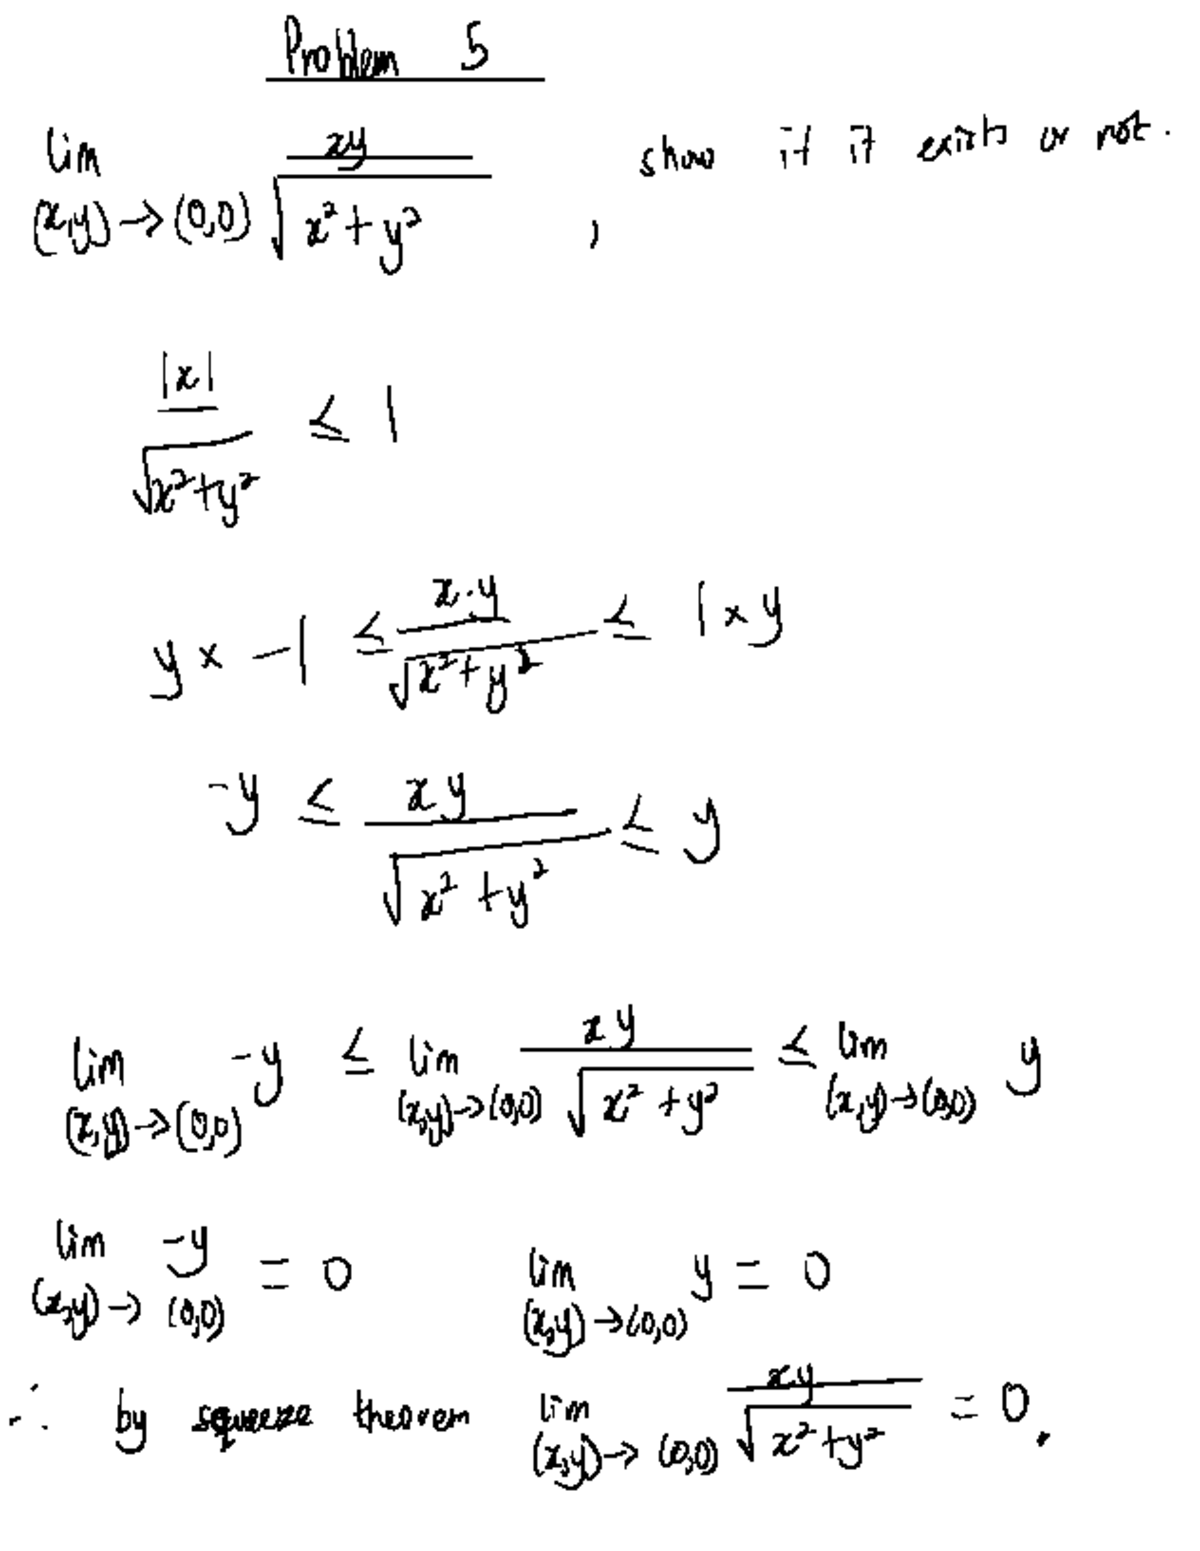 Problem 5
lim (x,y)→(0,0) xy / √(x² + y²) , show if it exists or not.
|x| / √(x²+y²) ≤ 1
y × -1 ≤ x·y / √(x²+y²) ≤ 1 × y
-y ≤ xy / √(x² + y²) ≤ y
lim (x,y)→(0,0) -y ≤ lim (x,y)→(0,0) xy / √(x² + y²) ≤ lim (x,y)→(0,0) y
lim (x,y)→(0,0) -y = 0 lim (x,y)→(0,0) y = 0
∴ by squeeze theorem lim (x,y)→(0,0) x.y / √(x²+y²) = 0.